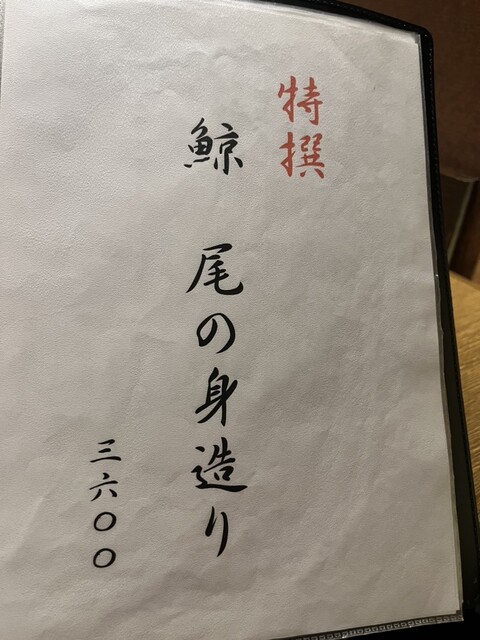 特撰
鯨 尾の身造り
三六〇〇